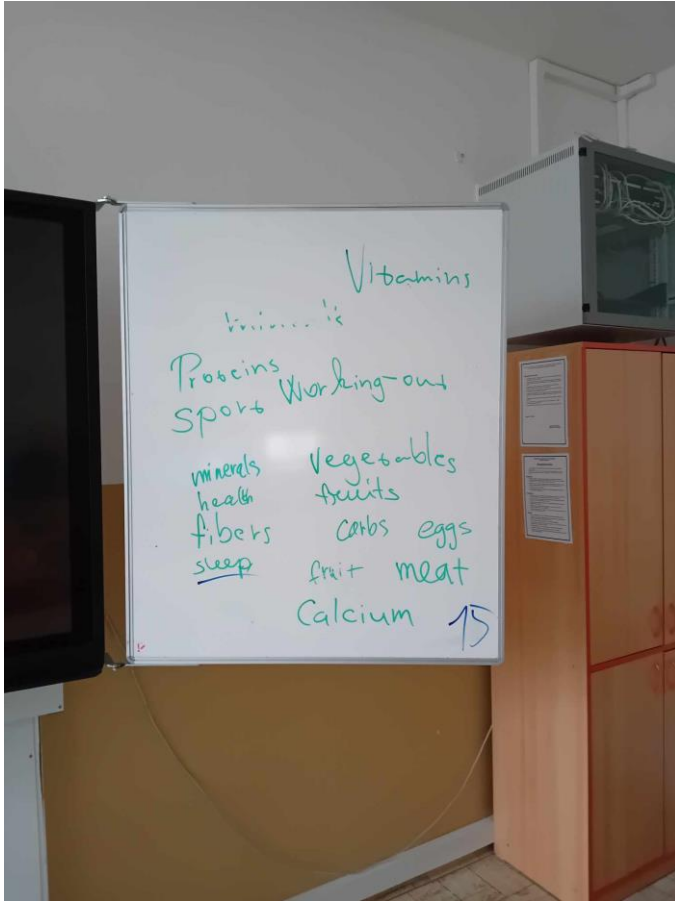 Vitamins
Proteins
Working-out
Sport
minerals
vegetables
health
fruits
fibers
carbs eggs
sleep
fruit meat
Calcium
15